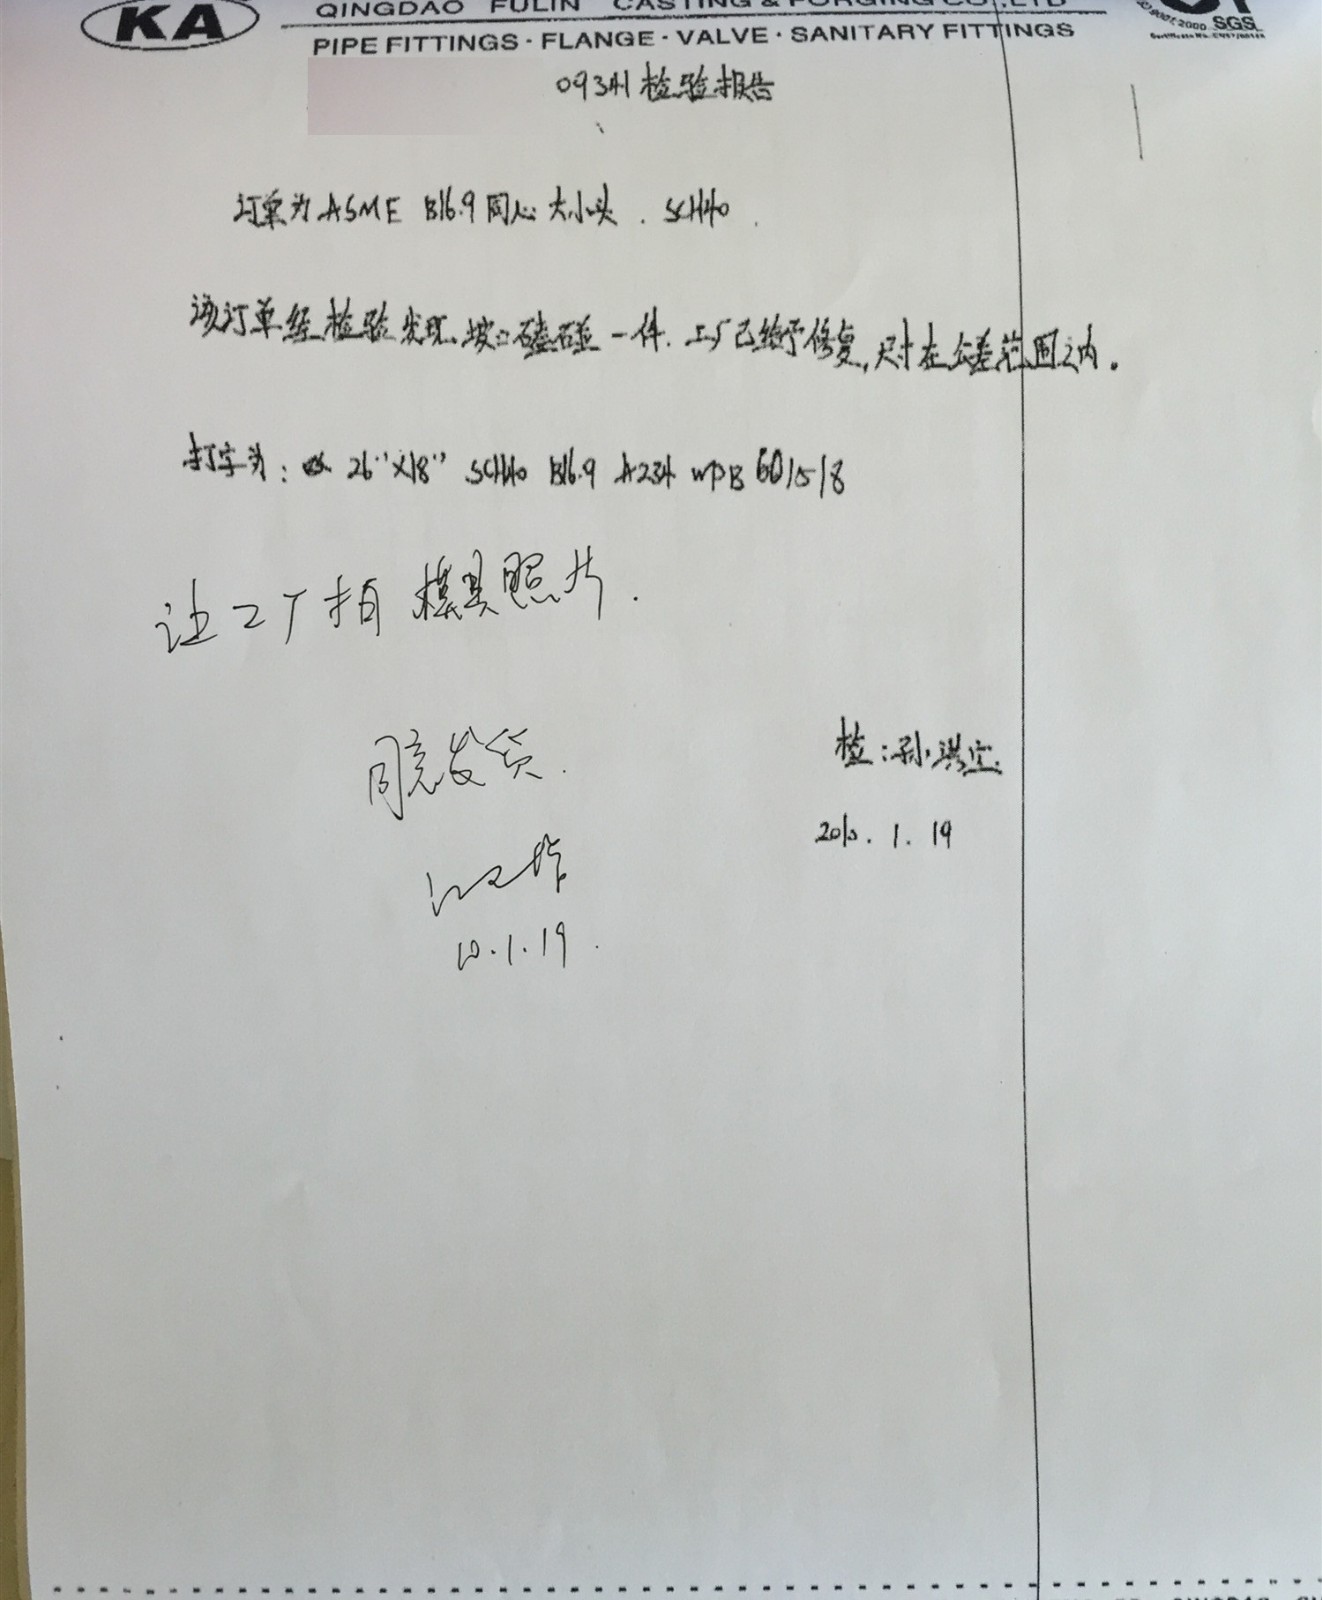 KA
QINGDAO FULIN CASTING & FORGING CO.,LTD
PIPE FITTINGS · FLANGE · VALVE · SANITARY FITTINGS
SGS
09341 检验报告
订单为 ASME B16.9 同心大小头. SCH40.
该订单经检验发现坡口磕碰一件.工厂已给予修复,尺寸在公差范围之内.
打字头: 26"×18" SCH40 B16.9 A234 WPB 601518
让工厂拍模具照片.
同意发货.
检:孙洪
2010.1.19
10.1.19.